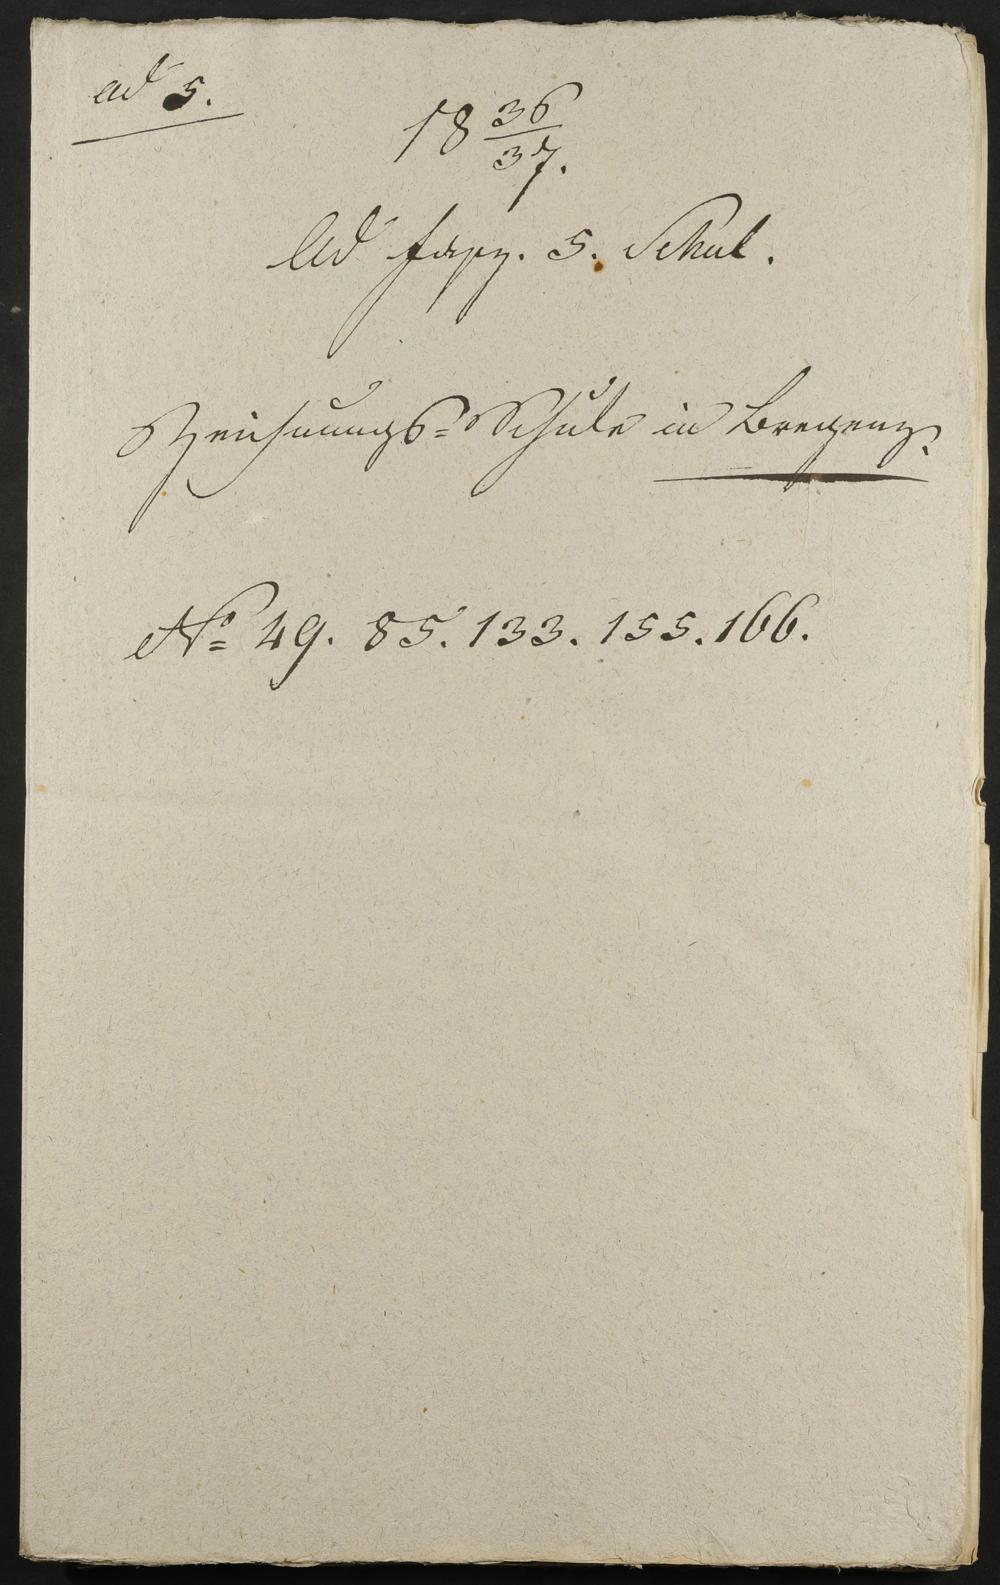 ad 5.
18 36/37.
Ad fasz. 5. Schul.
Zeichnungs-Schule in Bregenz.
No 49. 85. 133. 155. 166.